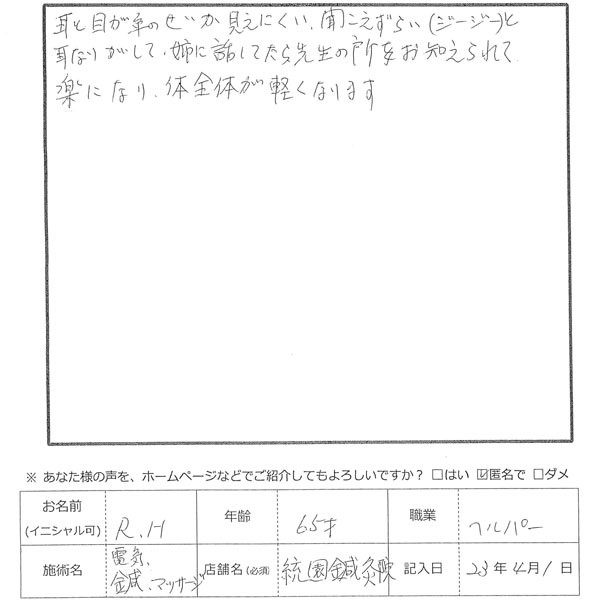 耳と目が年のせいか見えにくい、聞こえずらい(ジージー)と
耳なりがして、姉に話してたら先生の所をお知えられて
楽になり、体全体が軽くなります
※ あなた様の声を、ホームページなどでご紹介してもよろしいですか？ □はい ☑匿名で □ダメ
お名前 (イニシャル可) R.H 年齢 65才 職業 ヘルパー
施術名 電気、鍼、マッサージ 店舗名(必須) 統園鍼灸院 記入日 23年4月1日